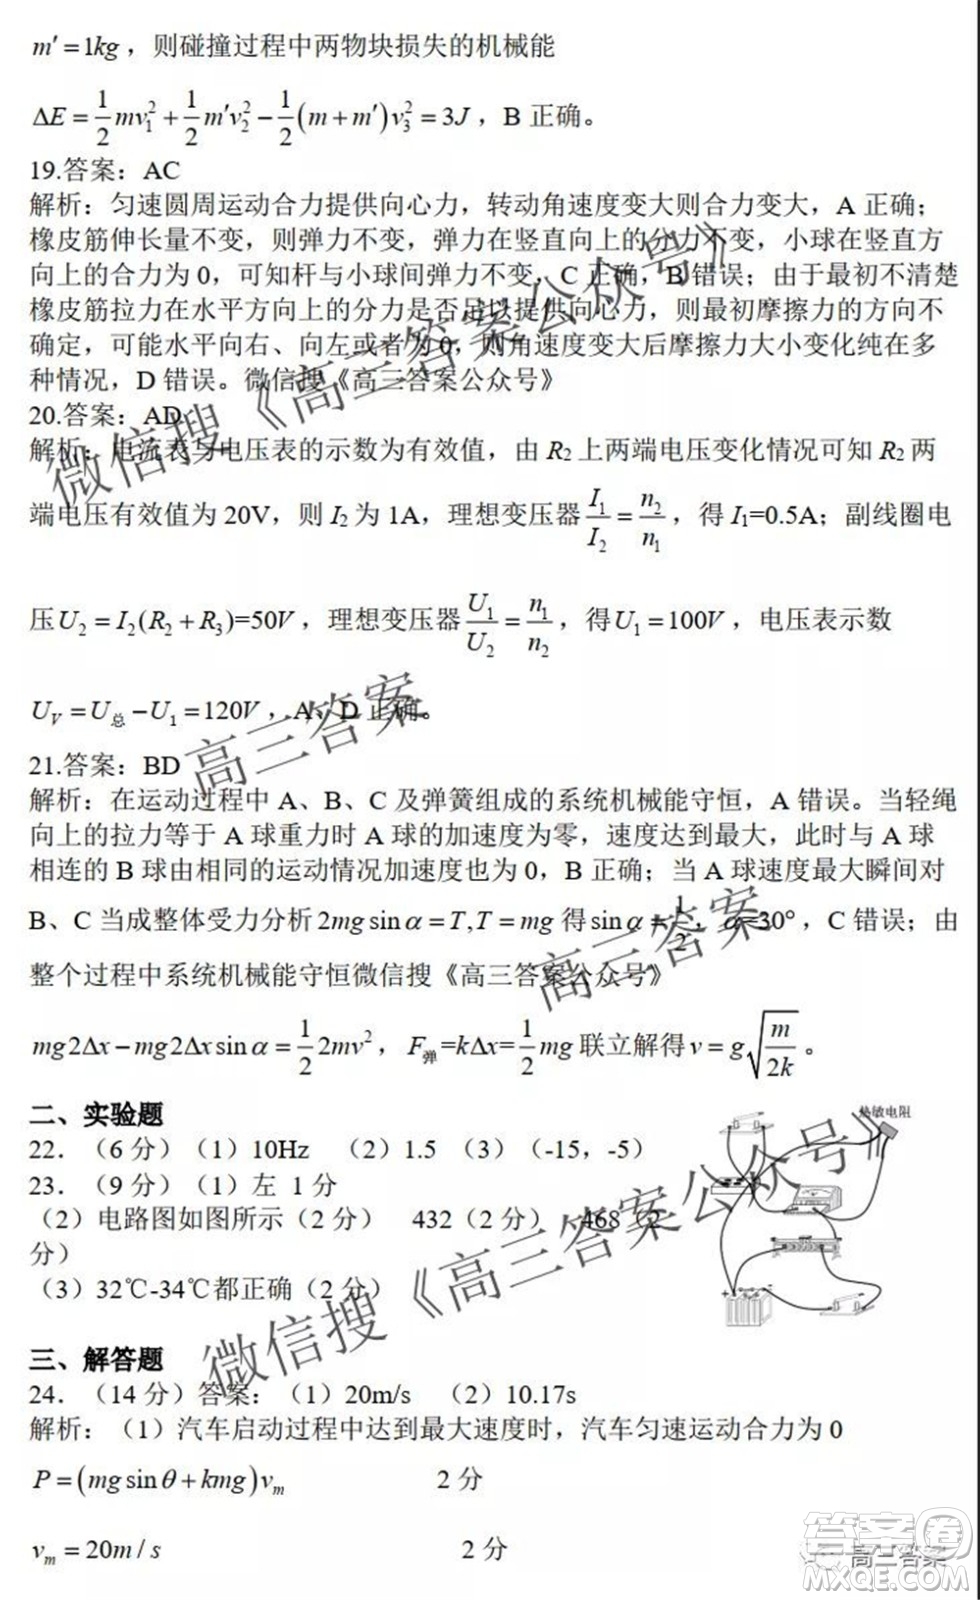 m′=1kg，则碰撞过程中两物块损失的机械能
ΔE=1/2 mv₁²+1/2 m′v₂²−1/2(m+m′)v₃²=3J，B 正确。
19.答案：AC
解析：匀速圆周运动合力提供向心力，转动角速度变大则合力变大，A 正确；
橡皮筋伸长量不变，则弹力不变，弹力在竖直向上的分力不变，小球在竖直方
向上的合力为 0，可知杆与小球间弹力不变，C 正确，B 错误；由于最初不清楚
橡皮筋拉力在水平方向上的分力是否足以提供向心力，则最初摩擦力的方向不
确定，可能水平向右、向左或者为 0，则角速度变大后摩擦力大小变化纯在多
种情况，D 错误。微信搜《高三答案公众号》
20.答案：AD
解析：电流表与电压表的示数为有效值，由 R₂ 上两端电压变化情况可知 R₂ 两
端电压有效值为 20V，则 I₂ 为 1A，理想变压器 I₁/I₂=n₂/n₁，得 I₁=0.5A；副线圈电
压U₂=I₂(R₂+R₃)=50V，理想变压器 U₁/U₂=n₁/n₂，得U₁=100V，电压表示数
U_V=U总−U₁=120V，A、D 正确。
21.答案：BD
解析：在运动过程中 A、B、C 及弹簧组成的系统机械能守恒，A 错误。当轻绳
向上的拉力等于 A 球重力时 A 球的加速度为零，速度达到最大，此时与 A 球
相连的 B 球由相同的运动情况加速度也为 0，B 正确；当 A 球速度最大瞬间对
B、C 当成整体受力分析 2mg sinα=T,T=mg 得 sinα=1/2，α=30°，C 错误；由
整个过程中系统机械能守恒微信搜《高三答案公众号》
mg2Δx−mg2Δx sinα=1/2 2mv²，F弹=kΔx=1/2 mg 联立解得 v=g√(m/2k)。
二、实验题
热敏电阻
22．（6 分）（1）10Hz （2）1.5 （3）（-15，-5）
23．（9 分）（1）左 1 分
（2）电路图如图所示（2 分） 432（2 分） 468（2
分）
（3）32℃-34℃都正确（2 分）
三、解答题
24．（14 分）答案：（1）20m/s （2）10.17s
解析：（1）汽车启动过程中达到最大速度时，汽车匀速运动合力为 0
P=(mg sinθ+kmg)v_m 2 分
v_m=20m/s 2 分
微信搜《高三答案公众号》
高三答案
高三答案
微信搜《高三答案公众号》
高三答案
答案圈
MXQE.COM